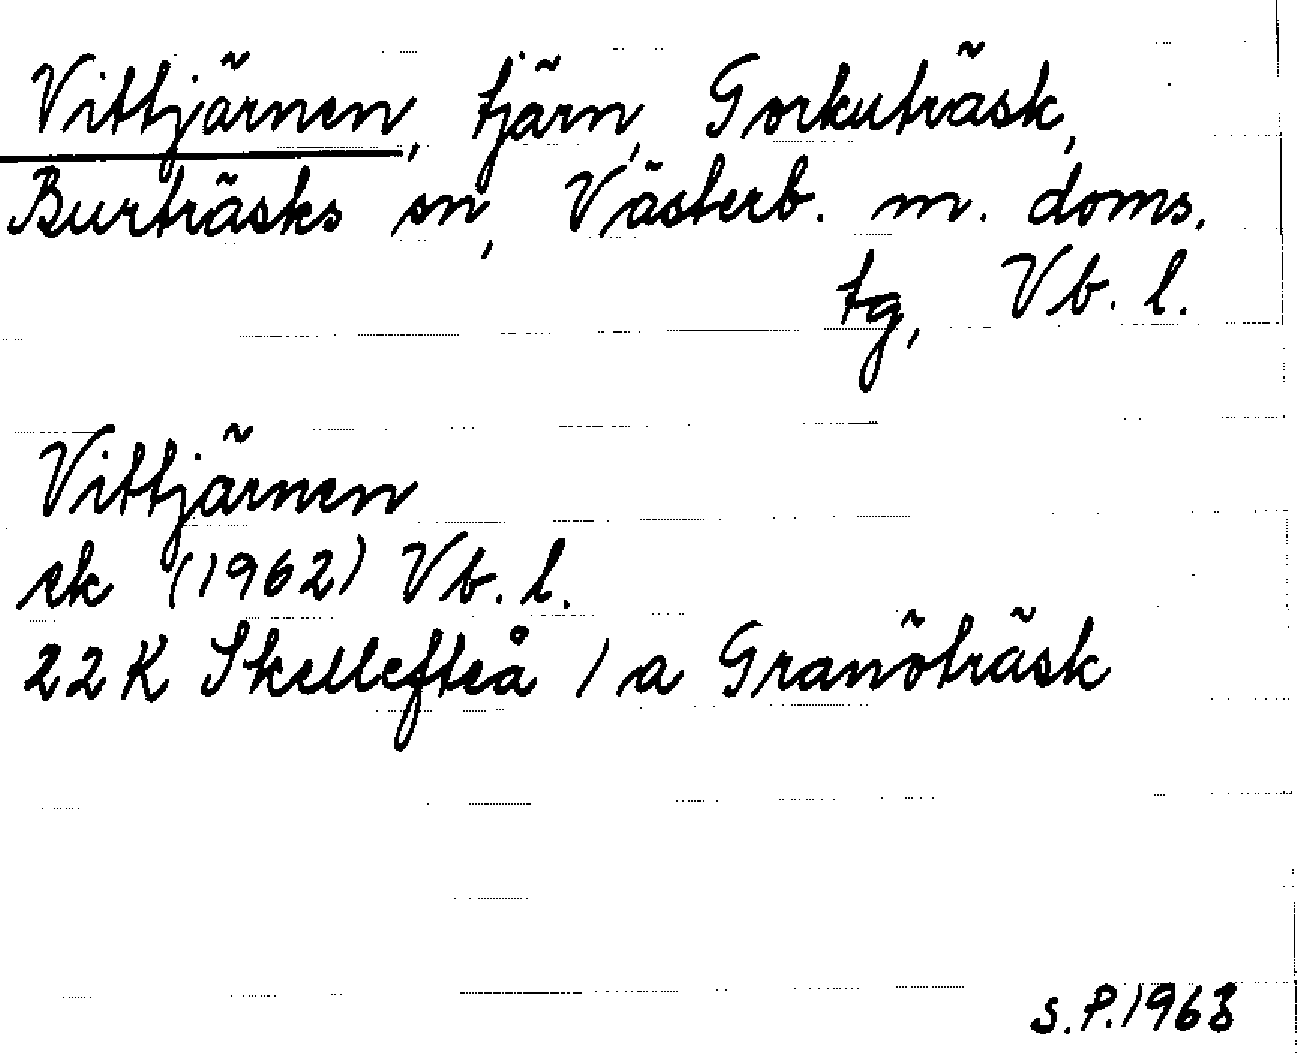 Vittjärnen, tjärn, Gorkuträsk,
Burträsks sn, Västerb. m. doms.
tg, Vb. l.
Vittjärnen
ek (1962) Vb. l.
22K Skellefteå 1 a Granöträsk
S.P.1963